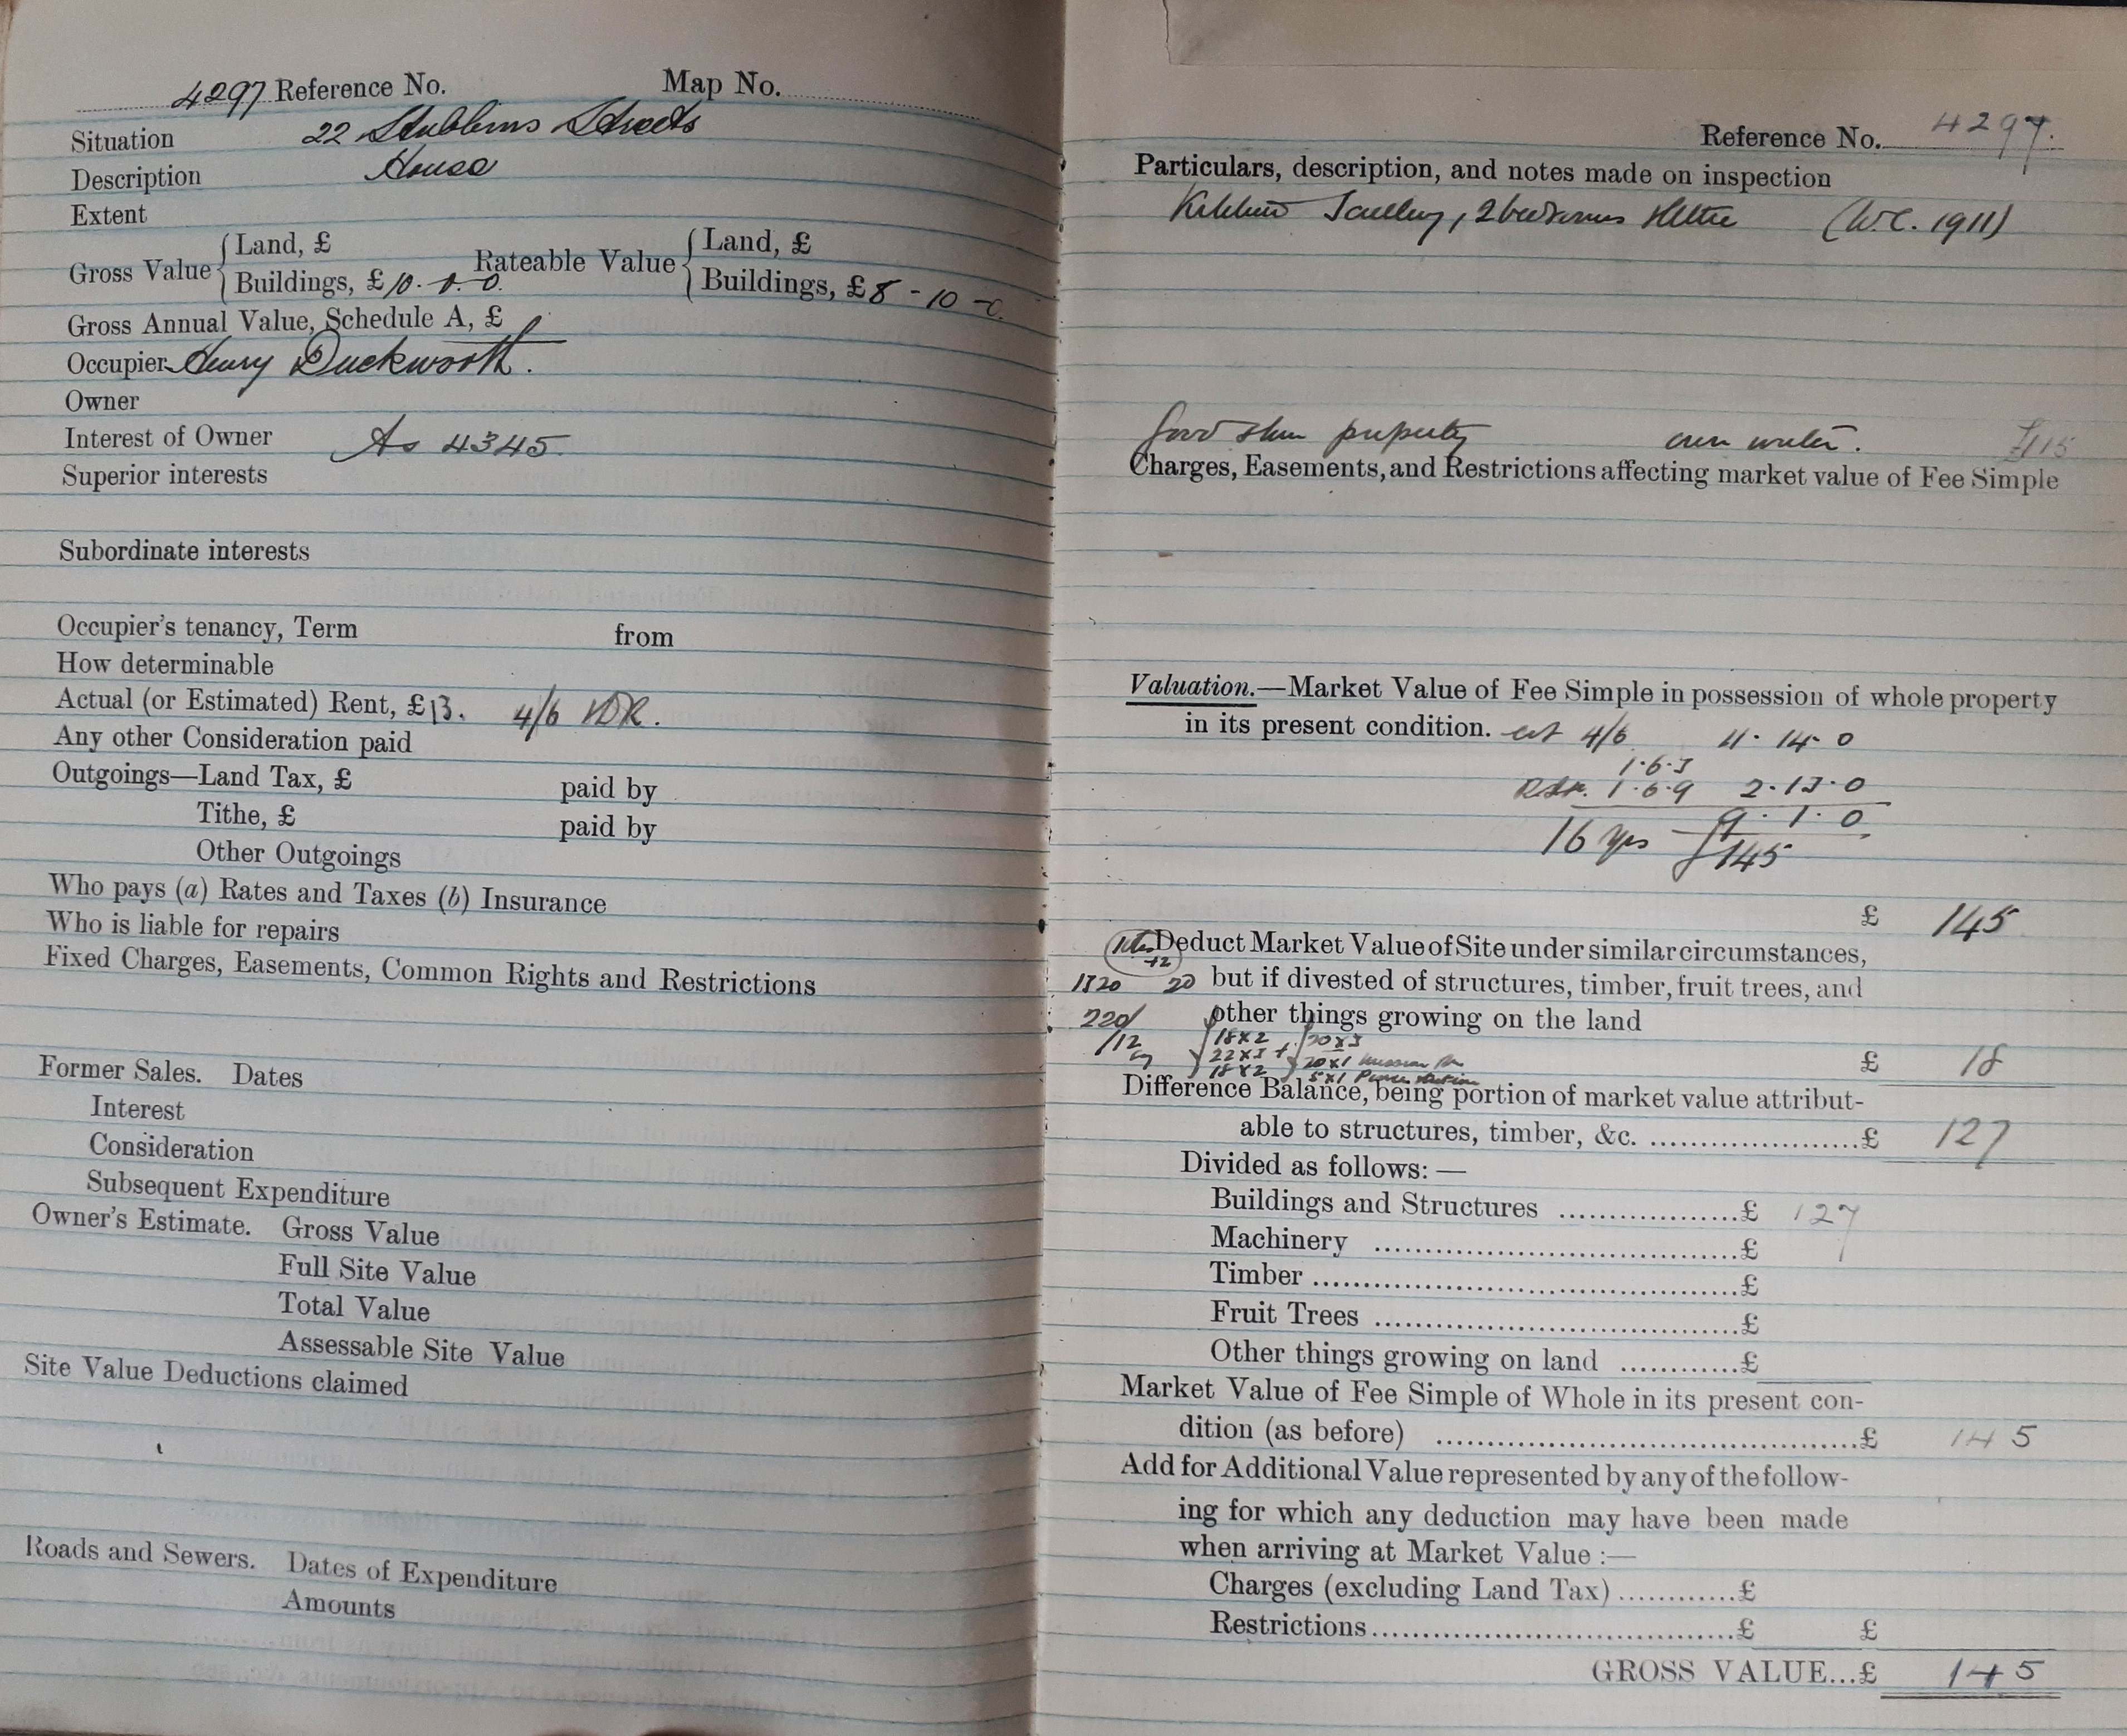 4297 Reference No. Map No.
Situation 22 Stubbins Street
Description House
Extent
Gross Value { Land, £ Rateable Value { Land, £
Buildings, £ 10. 0. 0. Buildings, £ 8 - 10 - 0.
Gross Annual Value, Schedule A, £
Occupier Henry Duckworth.
Owner
Interest of Owner As 4345.
Superior interests
Subordinate interests
Occupier's tenancy, Term from
How determinable
Actual (or Estimated) Rent, £ 13. 4/6
Any other Consideration paid
Outgoings—Land Tax, £ paid by
Tithe, £ paid by
Other Outgoings
Who pays (a) Rates and Taxes (b) Insurance
Who is liable for repairs
Fixed Charges, Easements, Common Rights and Restrictions
Former Sales. Dates
Interest
Consideration
Subsequent Expenditure
Owner's Estimate. Gross Value
Full Site Value
Total Value
Assessable Site Value
Site Value Deductions claimed
Roads and Sewers. Dates of Expenditure
Amounts
Reference No. 4297.
Particulars, description, and notes made on inspection
Kitchen Scullery, 2 bedrooms (W.C. 1911)
Good stone property own water. £115
Charges, Easements, and Restrictions affecting market value of Fee Simple
Valuation.—Market Value of Fee Simple in possession of whole property
in its present condition. 4/6 11. 14. 0
1.6.3
1.6.9 2.13.0
9. 1. 0
16 yrs £145
£ 145
Deduct Market Value of Site under similar circumstances,
1320 20 but if divested of structures, timber, fruit trees, and
220/ other things growing on the land
/12 18x2 20x3
22x3 + 20x1
18x2 5x1
£ 18
Difference Balance, being portion of market value attribut-
able to structures, timber, &c. ......................£ 127
Divided as follows: —
Buildings and Structures ..................£ 127
Machinery ......................................£
Timber .............................................£
Fruit Trees ......................................£
Other things growing on land ............£
Market Value of Fee Simple of Whole in its present con-
dition (as before) .............................................£ 145
Add for Additional Value represented by any of the follow-
ing for which any deduction may have been made
when arriving at Market Value :—
Charges (excluding Land Tax) ............£
Restrictions ......................................£ £
GROSS VALUE...£ 145